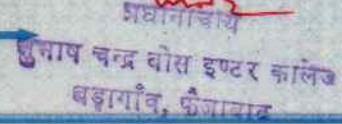 प्रधानाचार्य
सुभाष चन्द्र बोस इण्टर कालेज
बड़ागाँव, फैजाबाद